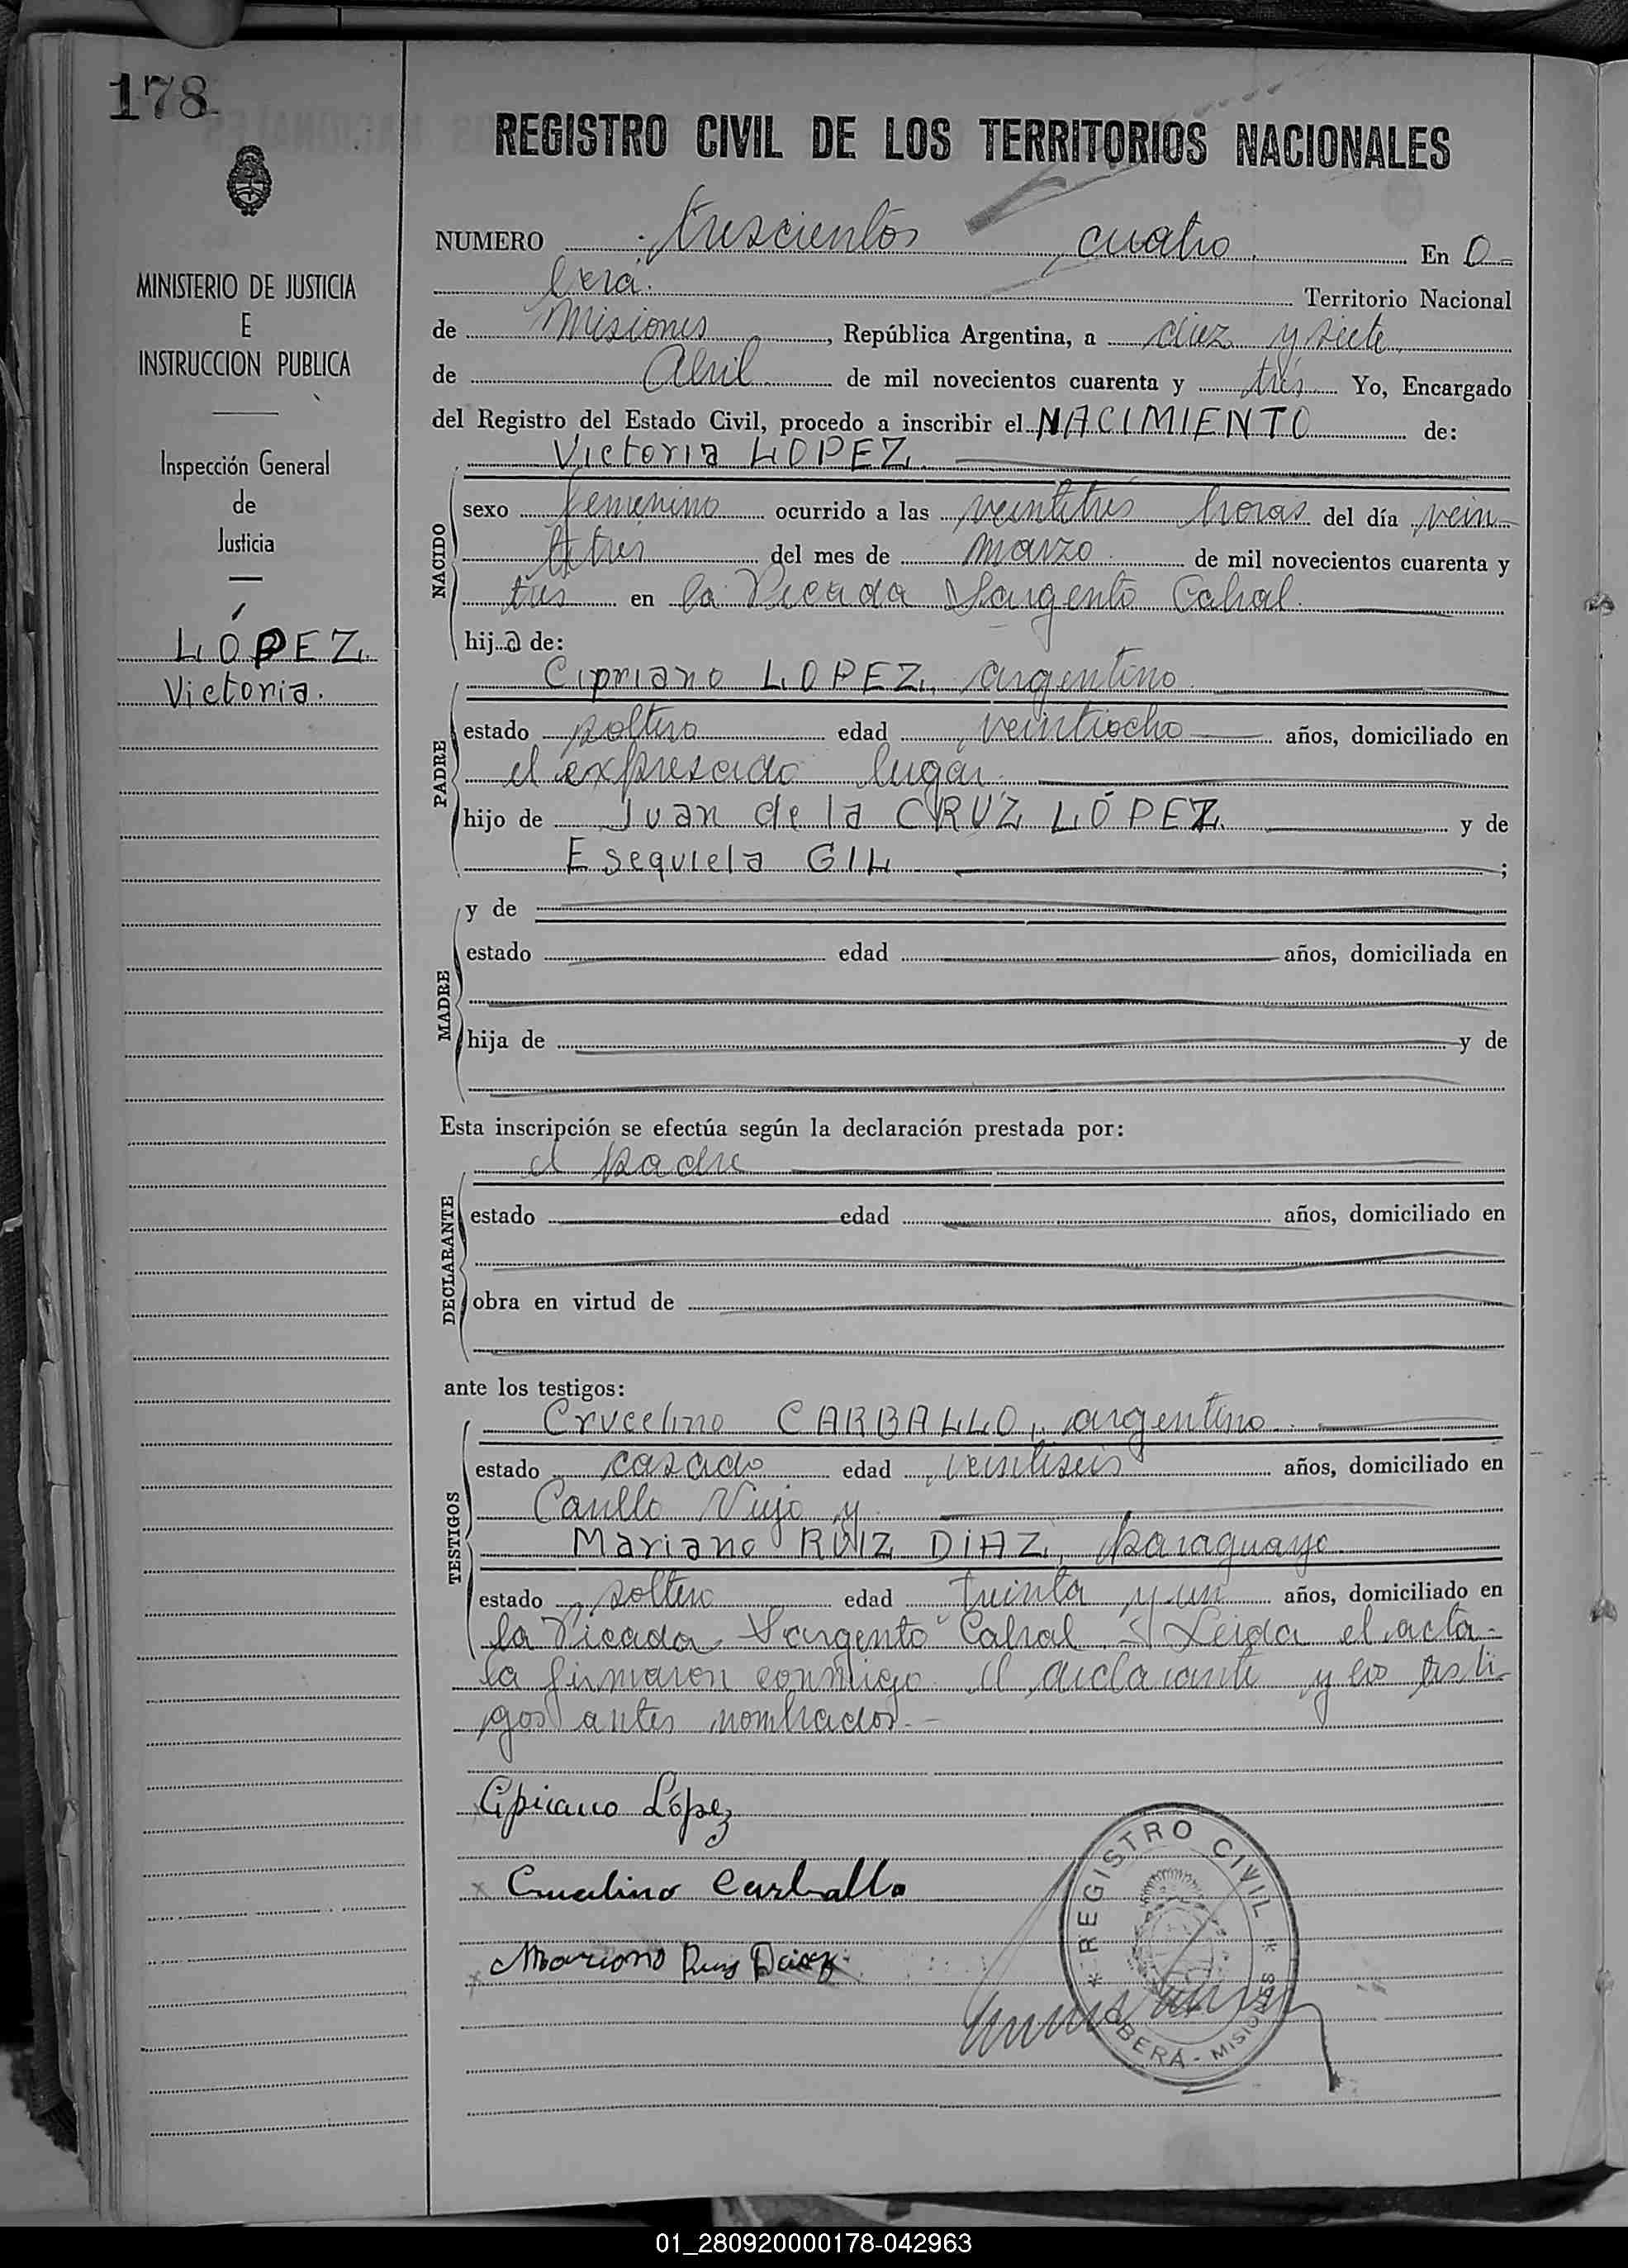 178
MINISTERIO DE JUSTICIA
E
INSTRUCCION PUBLICA
Inspección General
de
Justicia
LÓPEZ
Victoria.
REGISTRO CIVIL DE LOS TERRITORIOS NACIONALES
NUMERO trescientos cuatro. En O=
berá. Territorio Nacional
de Misiones, República Argentina, a diez y siete,
de Abril de mil novecientos cuarenta y tres Yo, Encargado
del Registro del Estado Civil, procedo a inscribir el NACIMIENTO de:
Victoria LOPEZ.
NACIDO
sexo femenino ocurrido a las veintitrés horas del día vein-
titres del mes de marzo de mil novecientos cuarenta y
tres en la Picada Sargento Cabral.
hija de:
PADRE
Cipriano LOPEZ, argentino
estado soltero edad veintiocho años, domiciliado en
el expresado lugar.
hijo de Juan de la CRUZ LÓPEZ. y de
Esequiela GIL ;
MADRE
y de
estado edad años, domiciliada en
hija de y de
Esta inscripción se efectúa según la declaración prestada por:
DECLARANTE
el padre
estado edad años, domiciliado en
obra en virtud de
ante los testigos:
TESTIGOS
Crucelino CARBALLO, argentino.
estado casado edad veintiseis años, domiciliado en
Viejo y
Mariano RUIZ DIAZ, paraguayo.
estado soltero edad treinta y un años, domiciliado en
la Picada Sargento Cabral. Leida el acta-
la firmaron conmigo el declarante y los testi-
gos antes nombrados.-
Cipriano López
x Crucelino Carballo
x Mariano Ruiz Diaz
* REGISTRO CIVIL *
OBERÁ - MISIONES
01_280920000178-042963